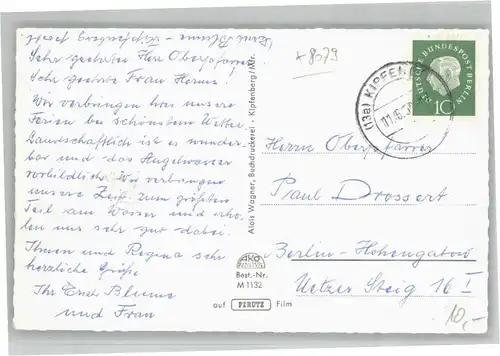 + 8079
Sehr geehrter Herr Oberpfarrer,
Sehr geehrte Frau
Wir verbringen hier unsere
Ferien bei schönstem Wetter.
Landschaftlich ist es wunder-
bar und das Angelwasser
vorbildlich. Wir verbringen
unsere Zeit zum größten
Teil am Wasser und erho-
len uns sehr gut dabei.
Ihnen und Regina sehr
herzliche Grüße
Ihr Erich Blume
und Frau
Alois Wagner, Buchdruckerei - Kipfenberg/Mfr.
AKO
Best.-Nr.
M 1132
auf PERUTZ Film
DEUTSCHE BUNDESPOST BERLIN
10
(13a) KIPFEN
Herrn Oberpfarrer
Paul Drossert
Berlin-Hohengatow
Uetzer Steig 16 I
10,-